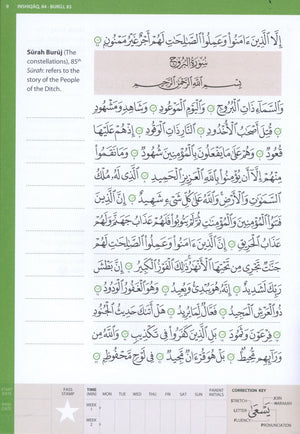 9 INSHIQĀQ, 84 - BURŪJ, 85
إِلَّا ٱلَّذِينَ ءَامَنُوا۟ وَعَمِلُوا۟ ٱلصَّٰلِحَٰتِ لَهُمْ أَجْرٌ غَيْرُ مَمْنُونٍۭ
Sūrah Burūj (The
constellations), 85th
Sūrah: refers to the
story of the People
of the Ditch.
سُورَةُ ٱلْبُرُوجِ
بِسْمِ ٱللَّهِ ٱلرَّحْمَٰنِ ٱلرَّحِيمِ
وَٱلسَّمَآءِ ذَاتِ ٱلْبُرُوجِ وَٱلْيَوْمِ ٱلْمَوْعُودِ وَشَاهِدٍ وَمَشْهُودٍ
قُتِلَ أَصْحَٰبُ ٱلْأُخْدُودِ ٱلنَّارِ ذَاتِ ٱلْوَقُودِ إِذْ هُمْ عَلَيْهَا
قُعُودٌ وَهُمْ عَلَىٰ مَا يَفْعَلُونَ بِٱلْمُؤْمِنِينَ شُهُودٌ وَمَا نَقَمُوا۟
مِنْهُمْ إِلَّآ أَن يُؤْمِنُوا۟ بِٱللَّهِ ٱلْعَزِيزِ ٱلْحَمِيدِ ٱلَّذِى لَهُۥ مُلْكُ
ٱلسَّمَٰوَٰتِ وَٱلْأَرْضِ وَٱللَّهُ عَلَىٰ كُلِّ شَىْءٍ شَهِيدٌ إِنَّ ٱلَّذِينَ
فَتَنُوا۟ ٱلْمُؤْمِنِينَ وَٱلْمُؤْمِنَٰتِ ثُمَّ لَمْ يَتُوبُوا۟ فَلَهُمْ عَذَابُ جَهَنَّمَ وَلَهُمْ
عَذَابُ ٱلْحَرِيقِ إِنَّ ٱلَّذِينَ ءَامَنُوا۟ وَعَمِلُوا۟ ٱلصَّٰلِحَٰتِ لَهُمْ
جَنَّٰتٌ تَجْرِى مِن تَحْتِهَا ٱلْأَنْهَٰرُ ذَٰلِكَ ٱلْفَوْزُ ٱلْكَبِيرُ إِنَّ بَطْشَ
رَبِّكَ لَشَدِيدٌ إِنَّهُۥ هُوَ يُبْدِئُ وَيُعِيدُ وَهُوَ ٱلْغَفُورُ ٱلْوَدُودُ
ذُو ٱلْعَرْشِ ٱلْمَجِيدُ فَعَّالٌ لِّمَا يُرِيدُ هَلْ أَتَىٰكَ حَدِيثُ ٱلْجُنُودِ
فِرْعَوْنَ وَثَمُودَ بَلِ ٱلَّذِينَ كَفَرُوا۟ فِى تَكْذِيبٍ وَٱللَّهُ مِن
وَرَآئِهِم مُّحِيطٌۢ بَلْ هُوَ قُرْءَانٌ مَّجِيدٌ فِى لَوْحٍ مَّحْفُوظٍۭ
START DATE
PASS STAMP
TIME (MIN) MON TUE WED THU FRI SAT SUN
WEEK 1
WEEK 2
PARENT INITIALS
CORRECTION KEY
STRETCH
LETTER
FLUENCY
JOIN
HARAKAH
PRONUNCIATION
يَسْعَىٰ